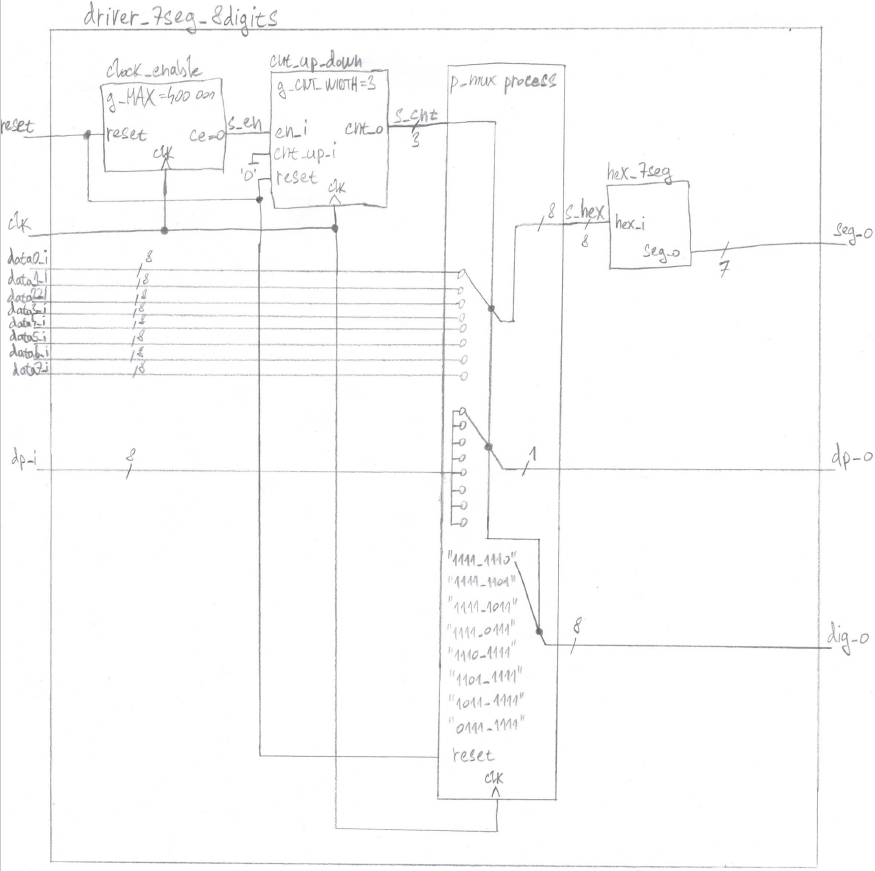 driver_7seg_8digits
clock_enable
g_MAX=400 000
reset
reset
ce_o
clk
s_en
cnt_up_down
g_CNT_WIDTH=3
en_i
cnt_o
cnt_up_i
'0'
reset
clk
s_cnt
3
p_mux process
hex_7seg
8
s_hex
8
hex_i
seg_o
7
seg_o
clk
data0_i
8
data1_i
8
data2_i
8
data3_i
8
data4_i
8
data5_i
8
data6_i
8
data7_i
8
dp_i
8
1
dp_o
"1111_1110"
"1111_1101"
"1111_1011"
"1111_0111"
"1110_1111"
"1101_1111"
"1011_1111"
"0111_1111"
8
dig_o
reset
clk